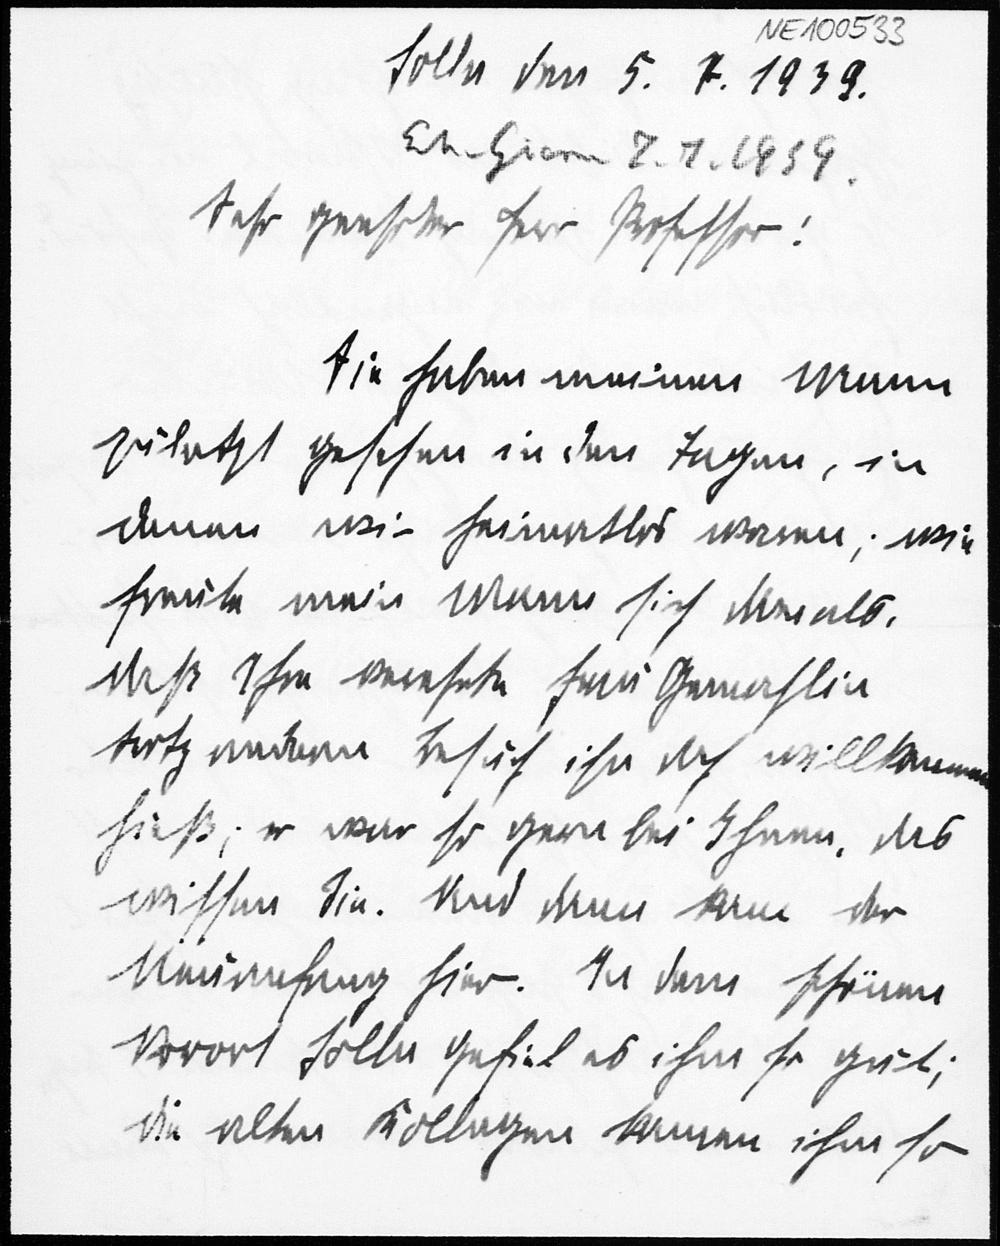 NE100533
Solln den 5. 7. 1939.
7.7.1939.
Sehr geehrter Herr Professor!
Sie haben meinen Mann
zuletzt gesehen in den Tagen, in
denen wir heimatlos waren; wie
freute mein Mann sich damals,
daß Ihre verehrte Frau Gemahlin
trotz anderem Besuch ihn doch willkommen
hieß; er war so gern bei Ihnen, das
wissen Sie. Und dann kam der
Neuanfang hier. In dem schönen
Vorort Solln gefiel es ihm so gut;
die alten Kollegen kamen ihm so